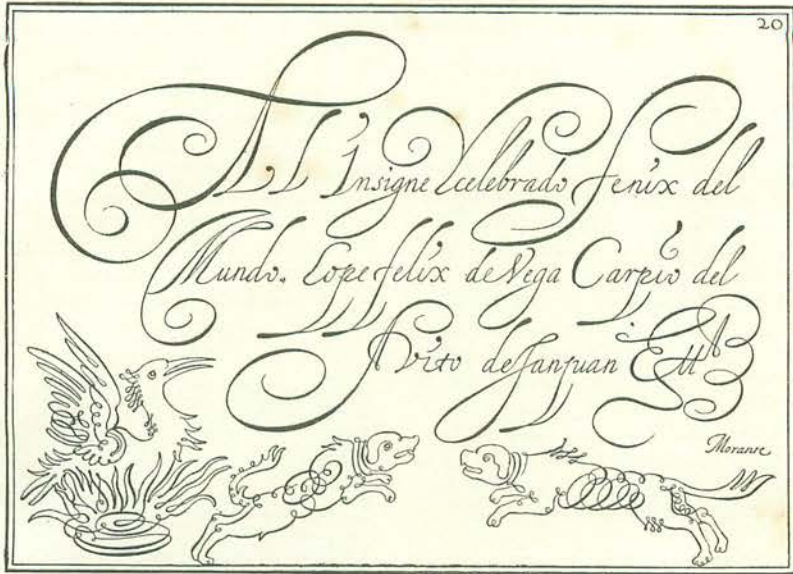 20
Al Insigne Ycelebrado fenix del
Mundo. Lope felix de Vega Carpio del
Avito de san Juan
Morante